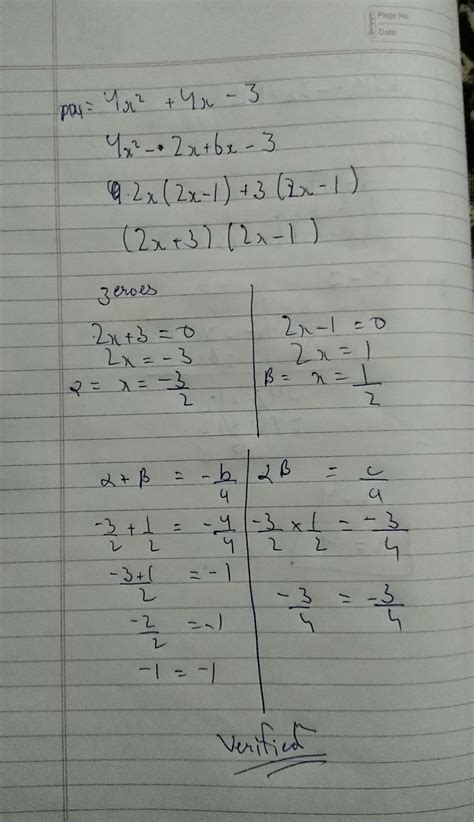 Page No
Date
p(x) = 4x² + 4x - 3
4x² - 2x + 6x - 3
2x(2x-1) + 3(2x-1)
(2x+3) (2x-1)
zeroes
2x+3 = 0
2x = -3
α = x = -3/2
2x-1 = 0
2x = 1
β = x = 1/2
α + β = -b/a
-3/2 + 1/2 = -4/4
-3+1/2 = -1
-2/2 = -1
-1 = -1
αβ = c/a
-3/2 × 1/2 = -3/4
-3/4 = -3/4
Verified